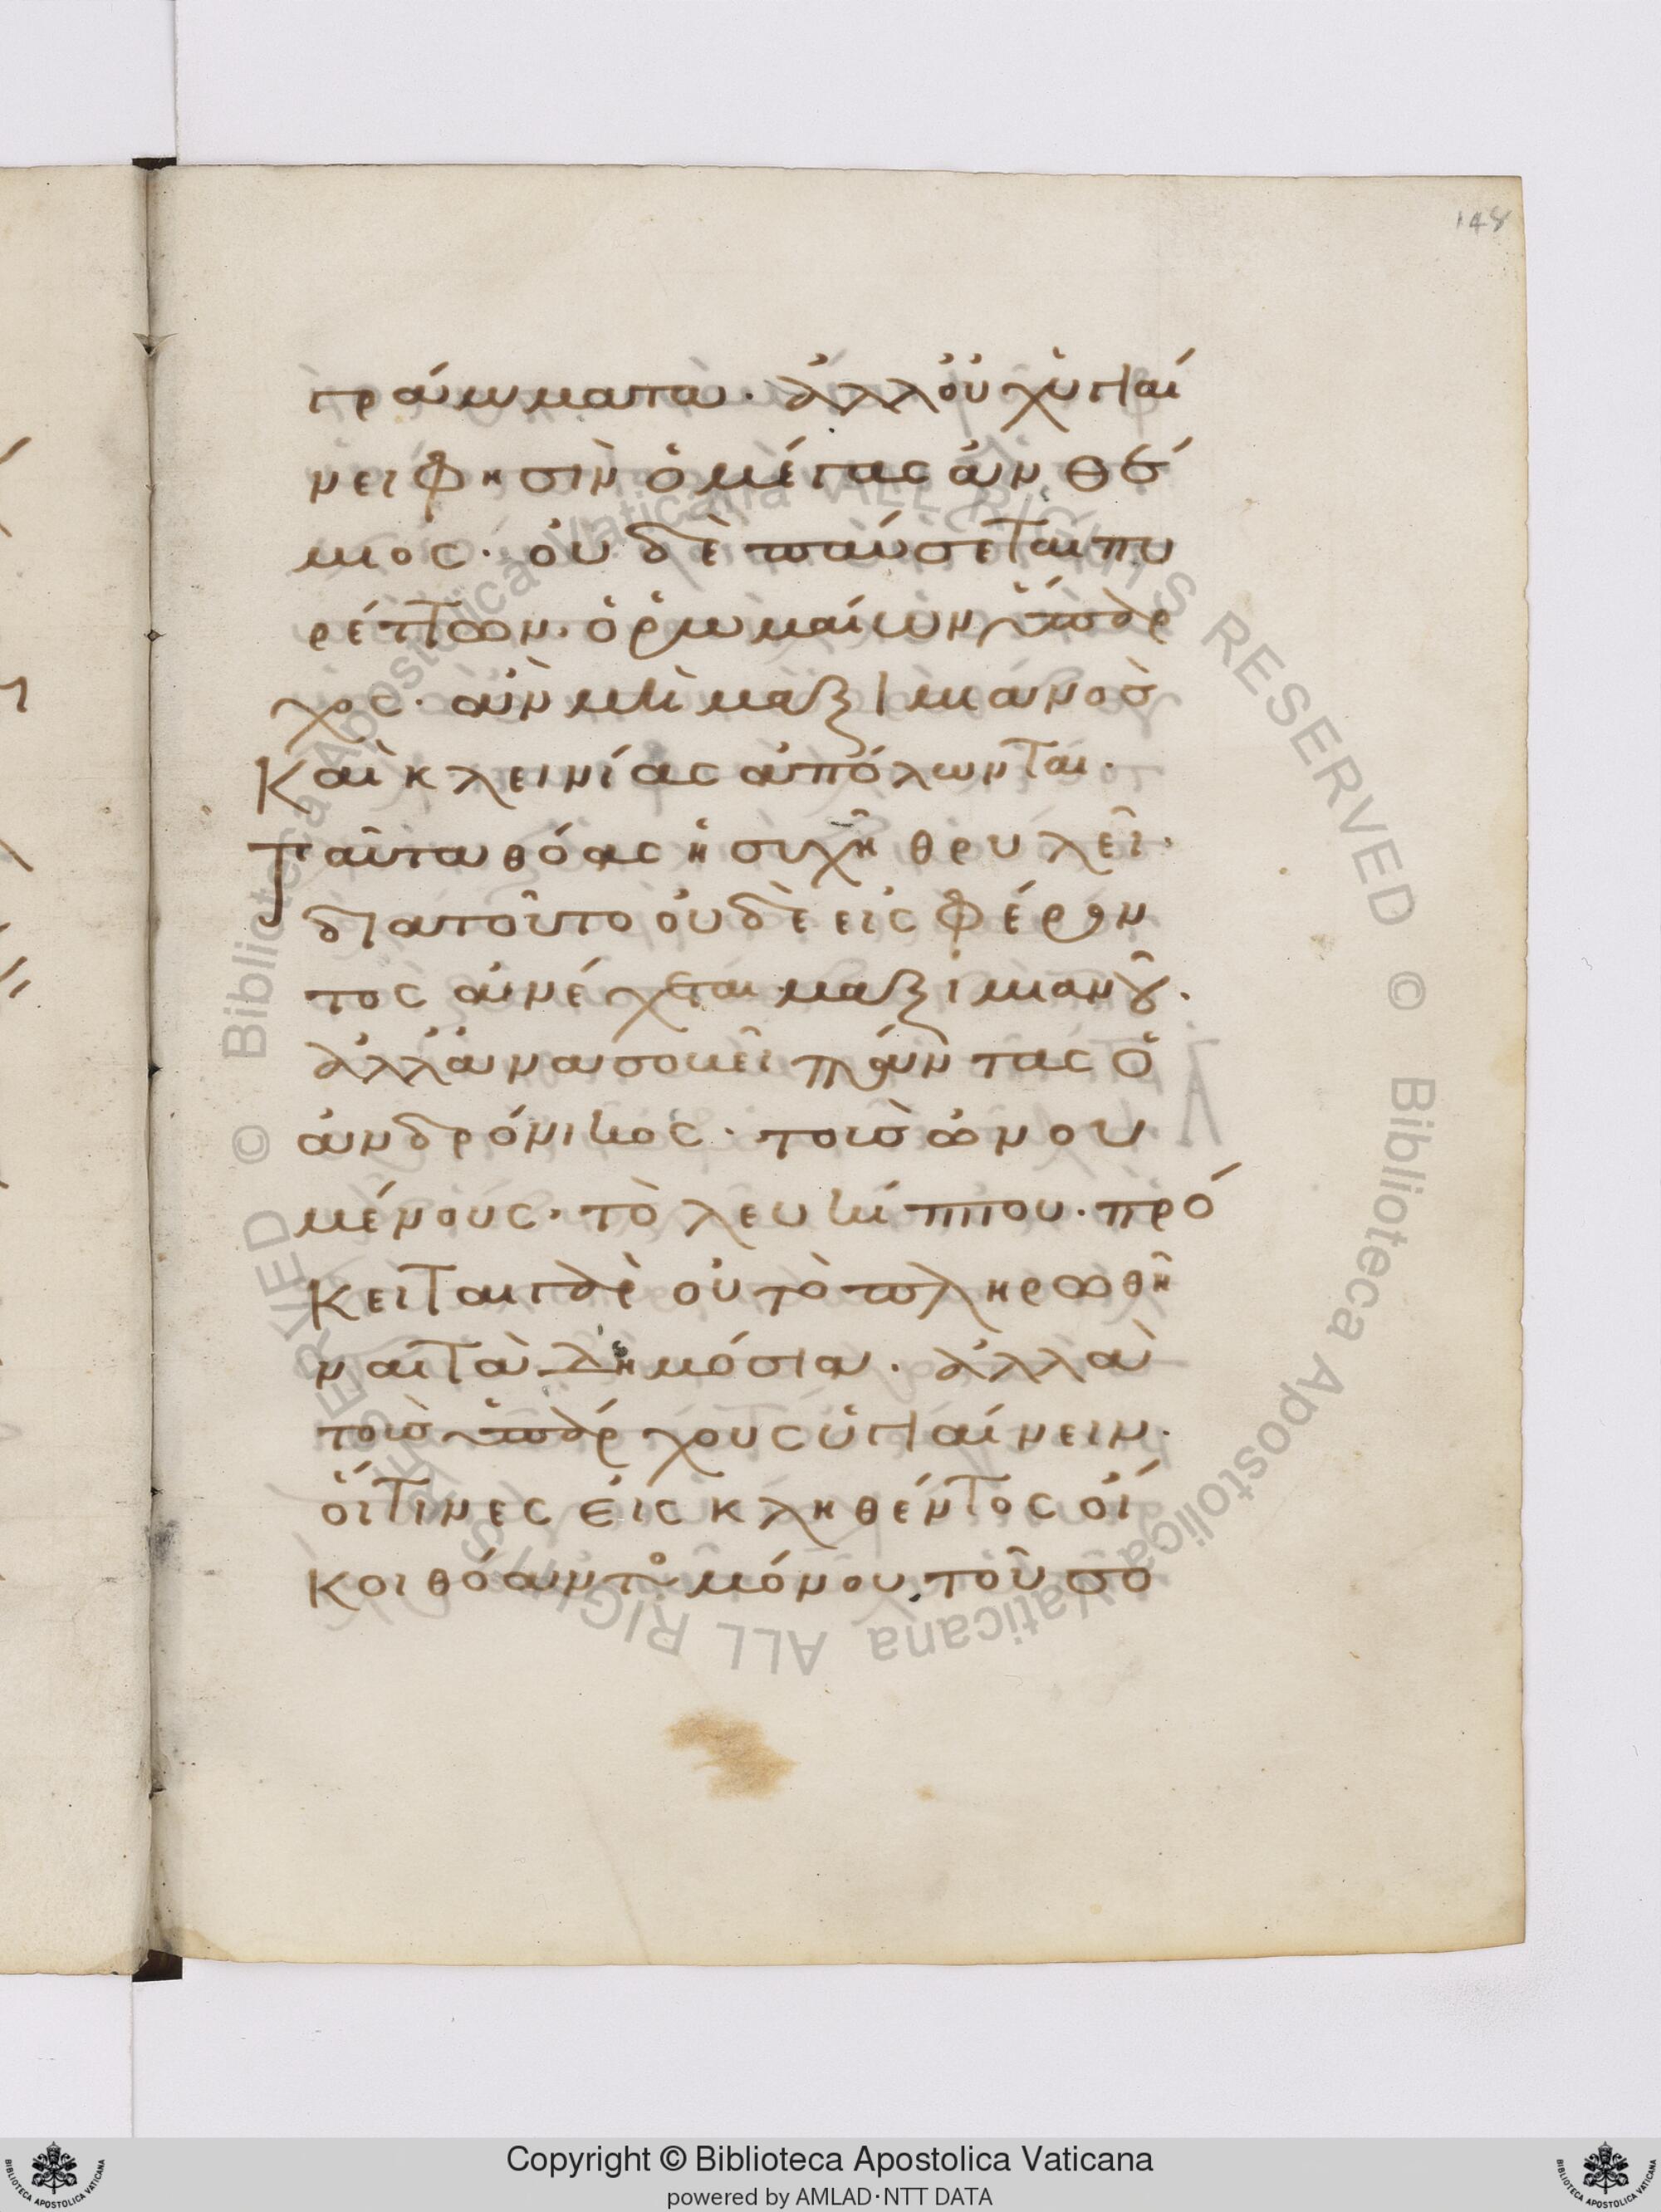 148
γράμματα· ἀλλ' οὐχ ὑγιαί
νει φησὶν ὁ μέγας ἄνθι
μος· οὐδὲ παύσεται πυ
ρέττων· ὁ ῥωμαίων ὕπαρ
χος· ἂν μὴ μαξιμιανὸσ
Καὶ κλεινίας ἀπόλωνται·
Ταῦτα βόας ἡσυχῆ θρυλεῖ·
διατοῦτο οὐδὲ εἰς φέρον
τος ἀνέχεται μαξιμιανοῦ·
ἀλλὰ μασσοκεῖ πάντας ὁ
ἀνδρόνικος· τοὺσ ὠνου
μένους· τὸ λευκίππου· πρό
κειται γὰρ οὐ τὸ πληρωθῆ
ναι τὰ δημόσια· ἀλλὰ
τοὺσ ὑπάρχους ὑγιαίνειν·
οἵτινες εἰσκληθέντος οἵ
κοι θόαντος μόνου, τοῦ σο
Copyright © Biblioteca Apostolica Vaticana
powered by AMLAD·NTT DATA
© Biblioteca Apostolica Vaticana ALL RIGHTS RESERVED
© Biblioteca Apostolica Vaticana ALL RIGHTS RESERVED